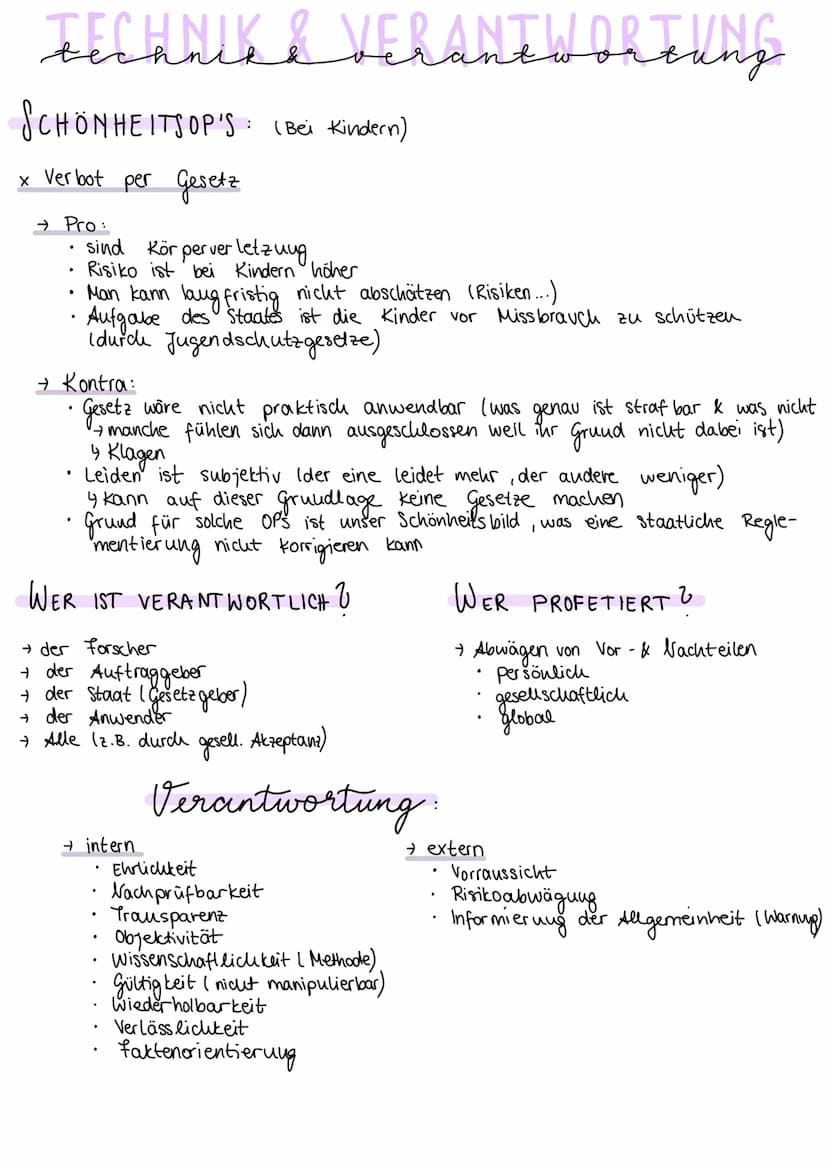 TECHNIK & VERANTWORTUNG
technik & verantwortung
SCHÖNHEITSOP'S: (Bei Kindern)
x Verbot per Gesetz
→ Pro:
• sind Körperverletzung
• Risiko ist bei Kindern höher
• Man kann langfristig nicht abschätzen (Risiken...)
• Aufgabe des Staates ist die Kinder vor Missbrauch zu schützen
(durch Jugendschutzgesetze)
→ Kontra:
• Gesetz wäre nicht praktisch anwendbar (was genau ist strafbar & was nicht
↪ manche fühlen sich dann ausgeschlossen weil ihr Grund nicht dabei ist)
↳ Klagen
• Leiden ist subjektiv (der eine leidet mehr, der andere weniger)
↳ kann auf dieser Grundlage keine Gesetze machen
• Grund für solche OPs ist unser Schönheitsbild, was eine staatliche Regle-
mentierung nicht korrigieren kann
WER IST VERANTWORTLICH?
→ der Forscher
→ der Auftraggeber
→ der Staat (Gesetzgeber)
→ der Anwender
→ Alle (z.B. durch gesell. Akzeptanz)
WER PROFETIERT?
→ Abwägen von Vor- & Nachteilen
• persönlich
• gesellschaftlich
• global
Verantwortung:
→ intern
• Ehrlichkeit
• Nachprüfbarkeit
• Transparenz
• Objektivität
• Wissenschaftlichkeit (Methode)
• Gültigkeit (nicht manipulierbar)
• Wiederholbarkeit
• Verlässlichkeit
• Faktenorientierung
→ extern
• Vorraussicht
• Risikoabwägung
• Informierung der Allgemeinheit (Warnung)